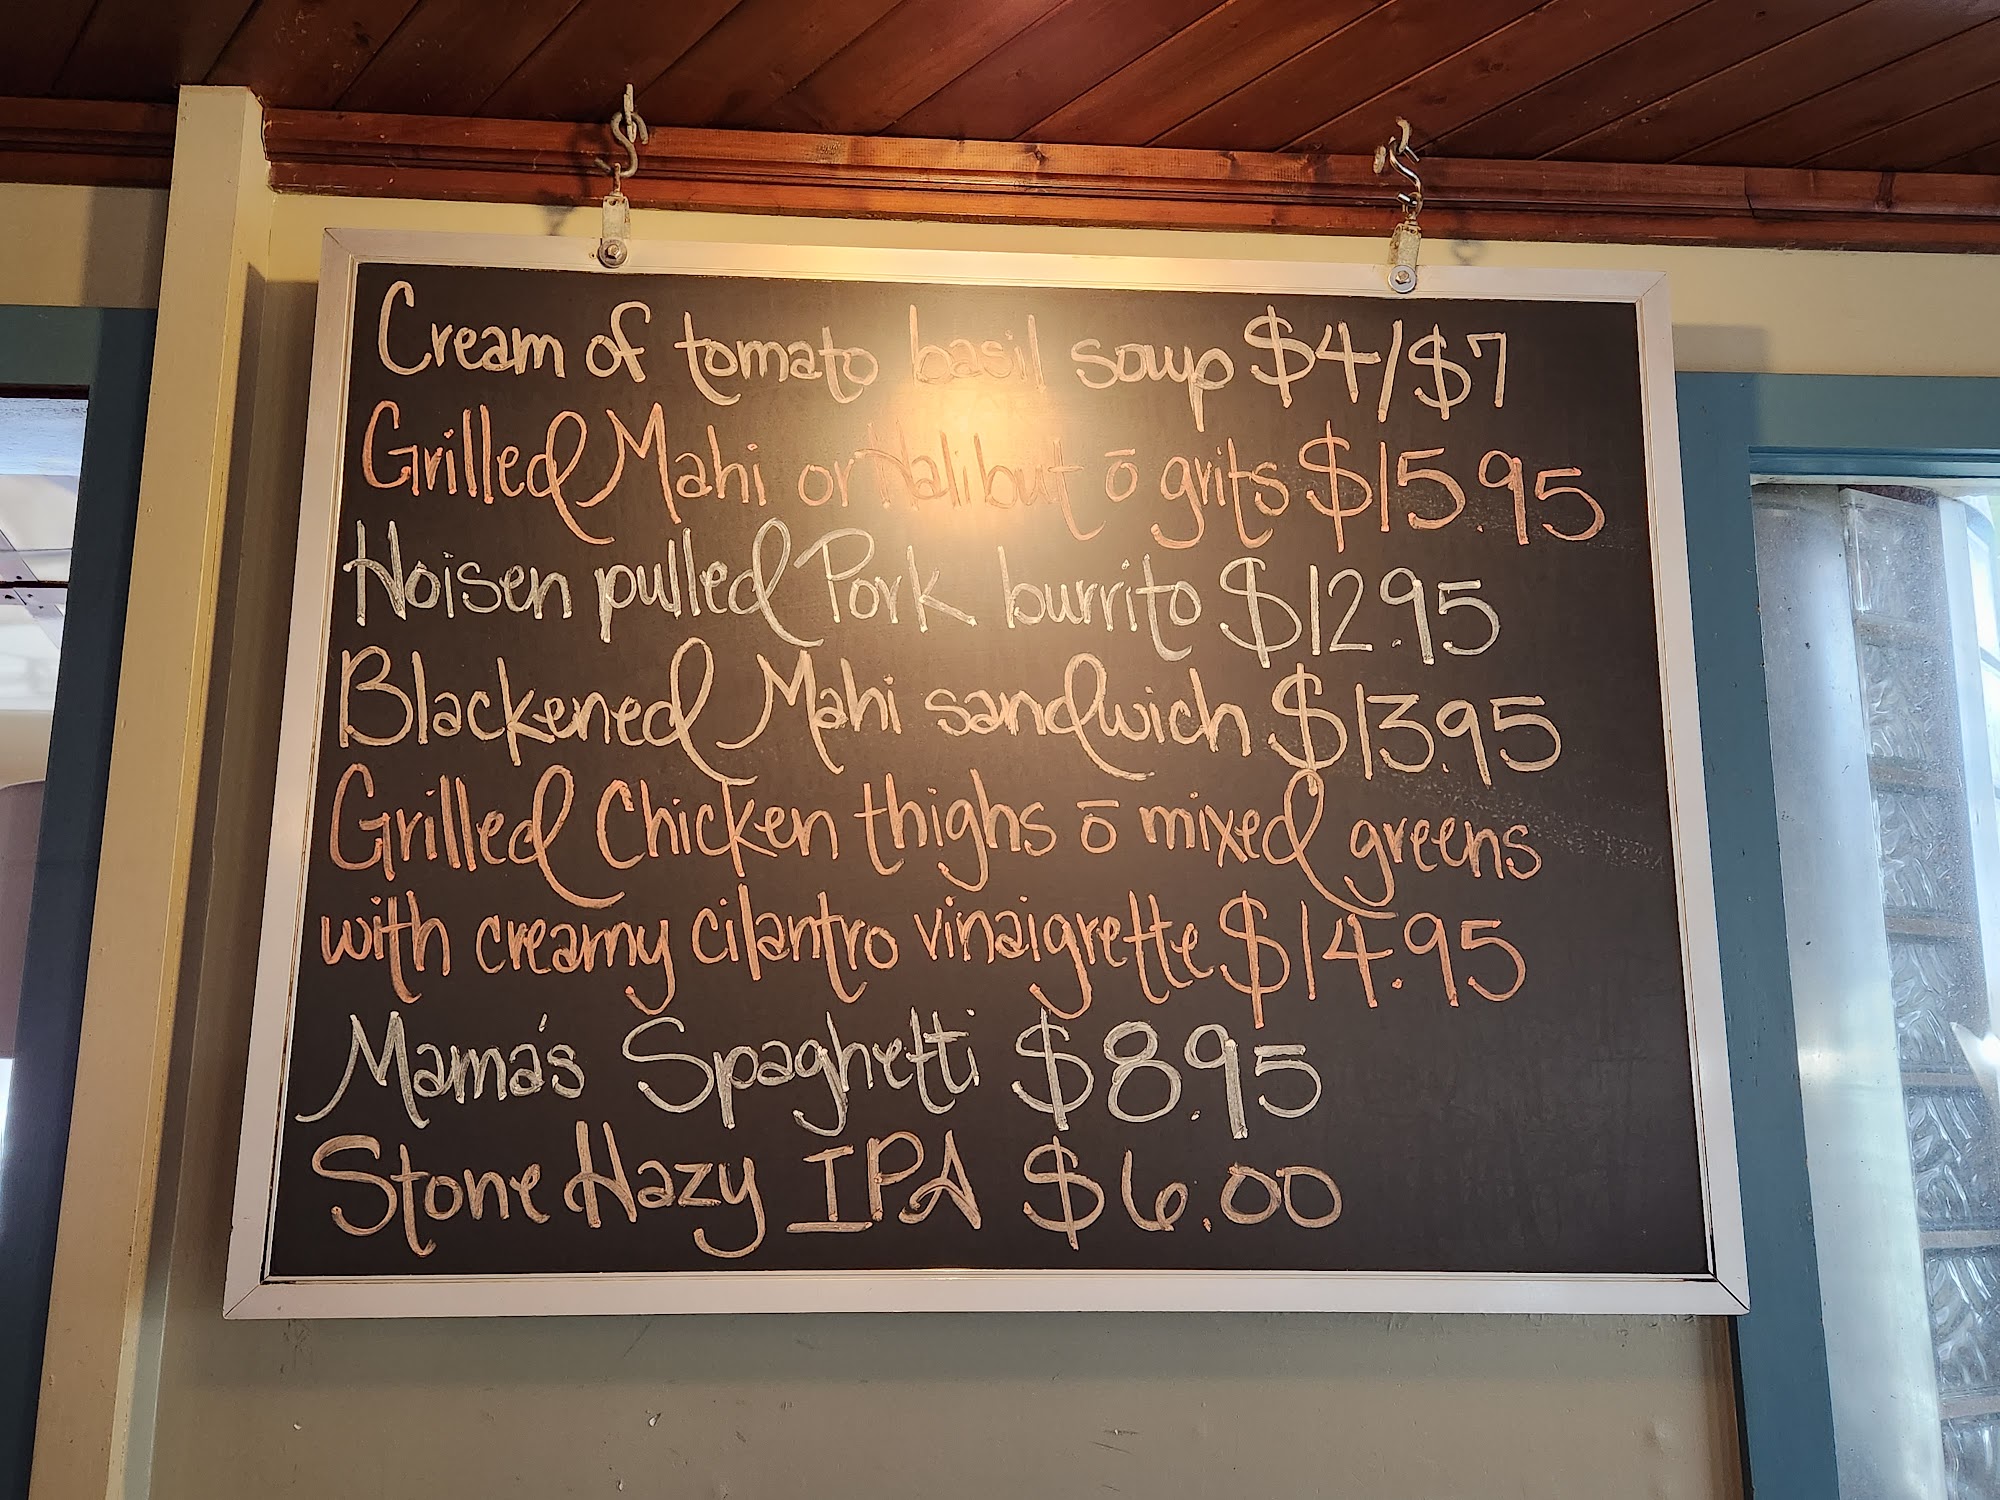 Cream of tomato basil soup $4/$7
Grilled Mahi or Halibut ō grits $15.95
Hoisen pulled Pork burrito $12.95
Blackened Mahi sandwich $13.95
Grilled Chicken thighs ō mixed greens
with creamy cilantro vinaigrette $14.95
Mama's Spaghetti $8.95
Stone Hazy IPA $6.00